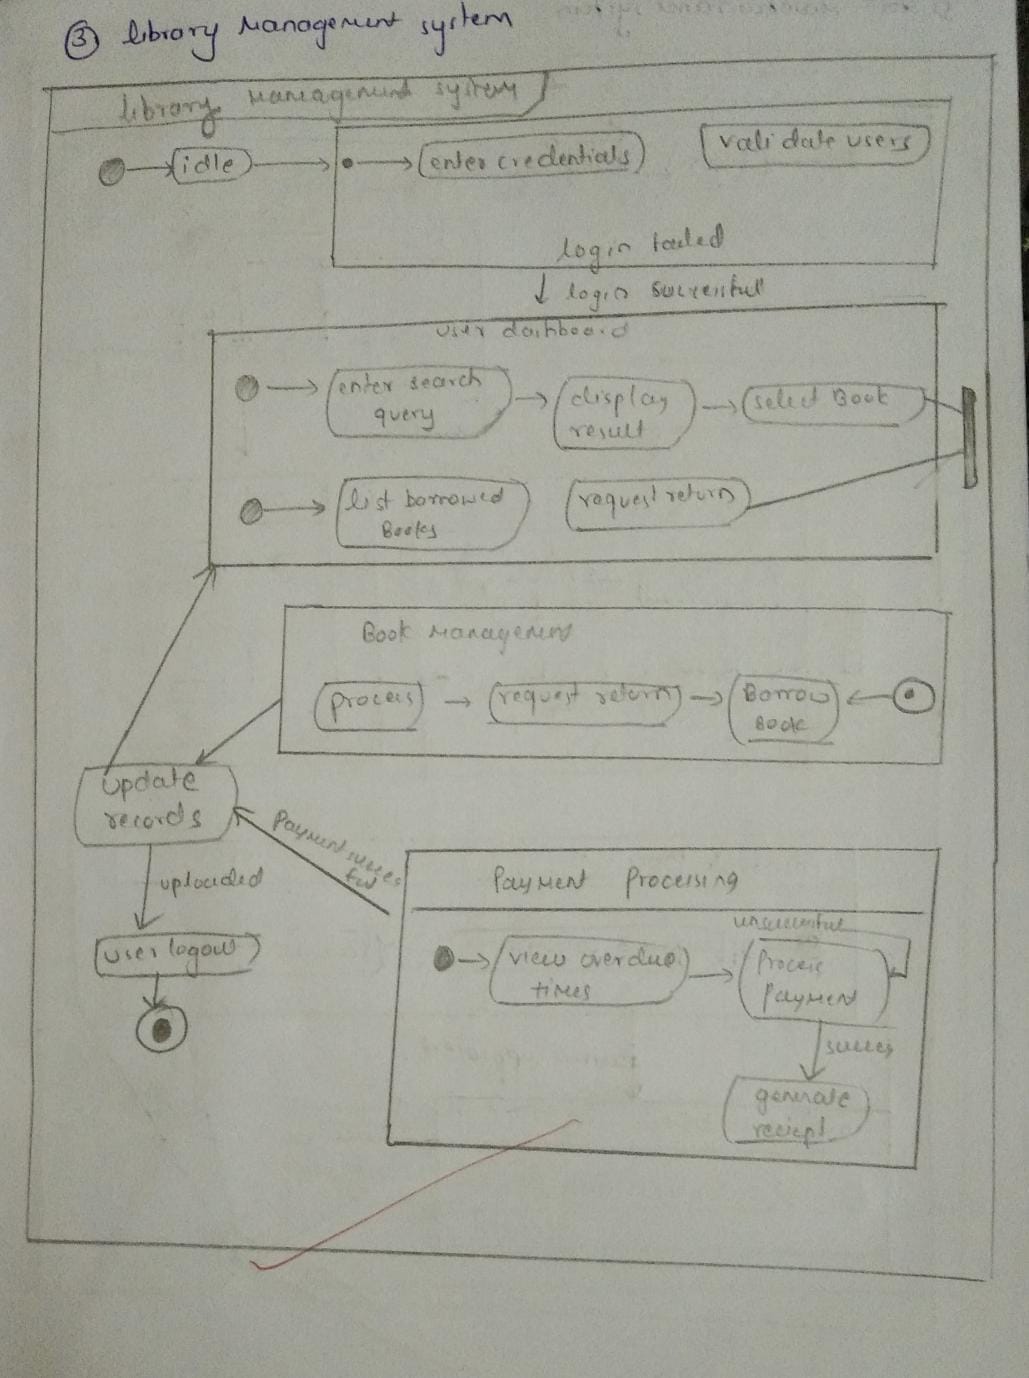 ③ library Management system
library Management system
idle
enter credentials
validate users
login failed
login successful
user dashboard
enter search
query
display
result
select Book
list borrowed
Books
request return
Book Management
process
request return
Borrow
Book
update
records
Payment succes
ful
uploaded
user logout
Payment Processing
unsuccessful
view overdue
times
Process
Payment
succes
generate
reciept